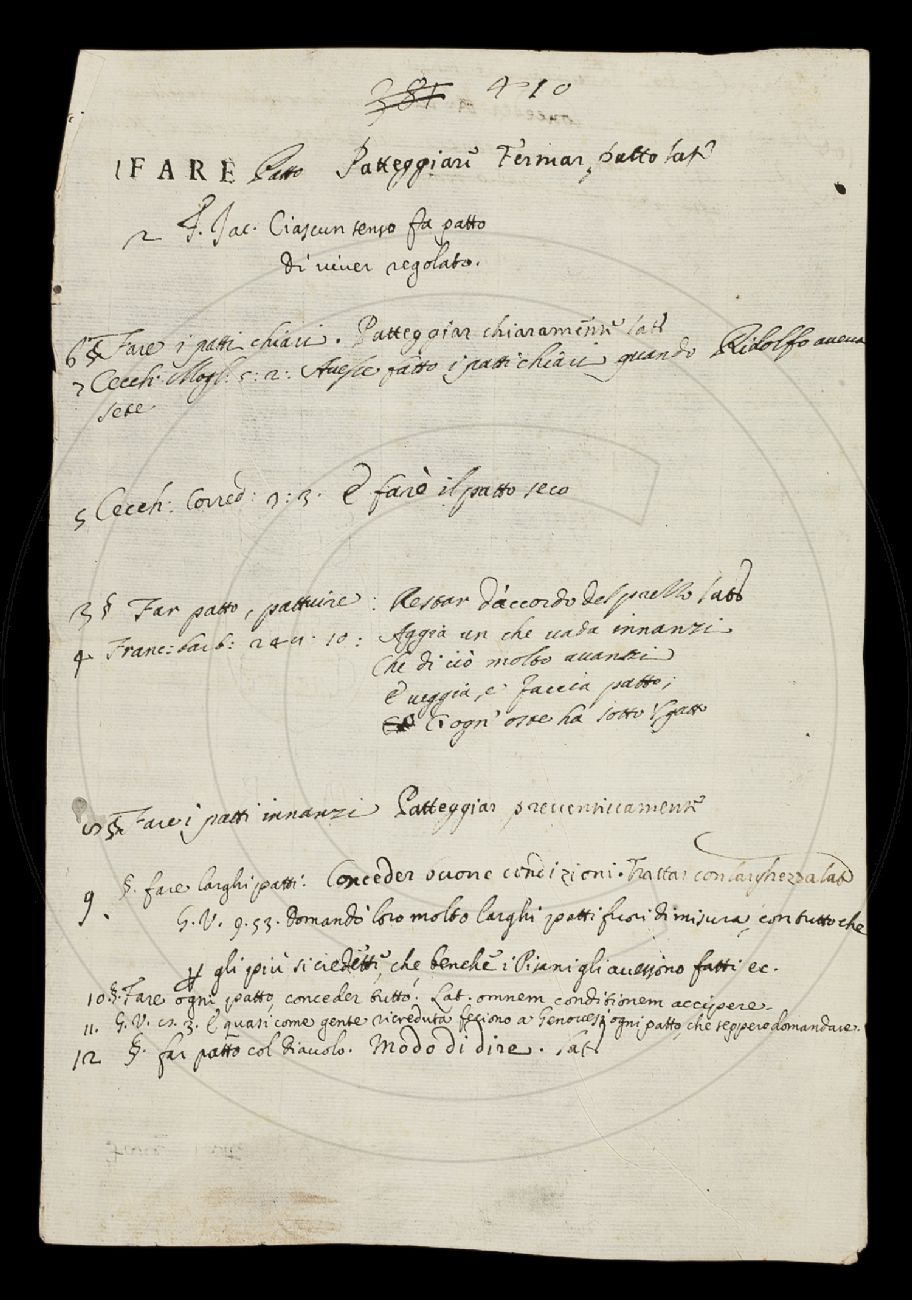 381 410
1 FARE Patto Patteggiare Fermar patto lat.
2 F. Jac. Ciascun senso fa patto
di viver regolato.
6 § Fare i patti chiari. Patteggiar chiaramente lat.
7 Cecch: Mogl: 5: 2: Avesse fatto i patti chiari quando Ridolfo aveva
sete
5 Cecch: Corred: 3: 3. E farò il patto seco
3 § Far patto, pattuire: Restar d'accordo del prezzo lat.
4 Franc: barb: 244: 10: Aggia un che vada innanzi
Che di ciò molto avanzi
E veggia, e faccia patto;
Ch' ogn' oste ha sotto 'l gatto
8 § Fare i patti innanzi Patteggiar preventivamente
9 §. fare larghi patti. Conceder buone condizioni. Trattar con larghezza lat.
G. V. 9. 53. domandò loro molto larghi patti fuori di misura, con tutto che
gli più si credetti, che, benchè i Pisani gli avessono fatti ec.
10 §. Fare ogni patto, conceder tutto. Lat. omnem conditionem accipere.
11. G. V. 12. 3. E quasi come gente ricreduta feciono a Genovesi ogni patto, che seppero domandare.
12 §. far patto col diavolo. Modo di dire. lat.